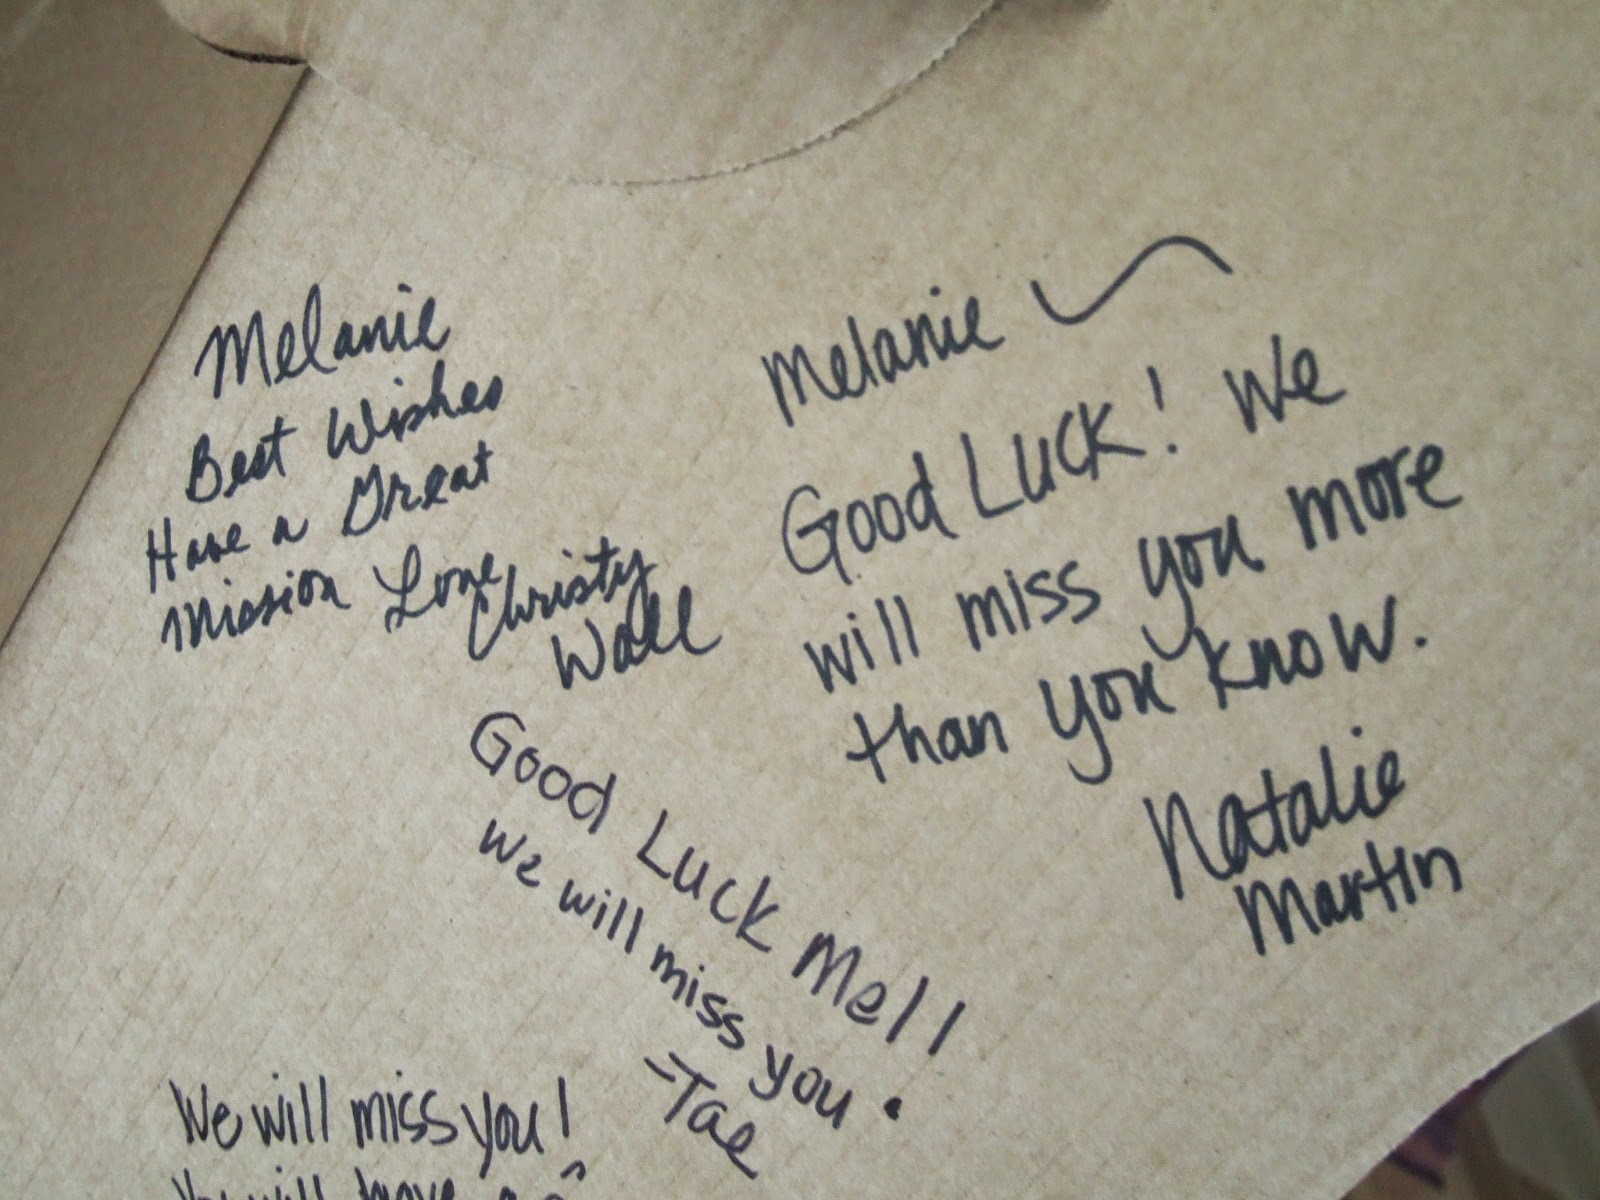 Melanie
Best Wishes
Have a Great
Mission Love
Christy
Wall
Melanie
Good Luck! We
will miss you more
than you know.
Natalie
Martin
Good Luck Mel!
We will miss you.
-Tae
We will miss you!
You will have a